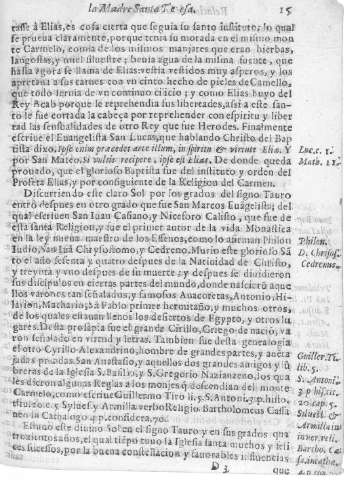 la Madre Santa Teresa. 15
esse à Elias, es cosa cierta que seguia su santo instituto, lo qual
se prueua claramente, porque tenia su morada en el mismo mon
te Carmelo, comia de los mismos manjares que eran hierbas,
langostas, y miel siluestre; beuia agua de la misma fuente, que
hasta agora se llama de Elias: vestia vestidos muy asperos, y los
apretaua a sus carnes con vn cinto hecho de pieles de Camello,
que todo seruia de vn continuo cilicio; y como Elias huyo del
Rey Acab porque le reprehendia sus libertades, assi a este san-
to le fue cortada la cabeça por reprehender con espiritu y liber
tad las sensualidades de otro Rey que fue Herodes. Finalmente
escriue el Euangelista San Lucas, que hablando Christo del Bap
tista dixo. Ipse enim præcedet ante illum, in spiritu & virtute Eliæ. Y
por San Mateo. Si vultis recipere, ipse est Elias. De donde queda
prouado, que el glorioso Baptista fue del instituto y orden del
Profeta Elias, y por consiguiente de la Religion del Carmen.
Discurriendo este claro Sol por los grados del signo Tauro
entrò despues en otro grado que fue San Marcos Euãgelista; del
qual escriuen San Iuan Casiano, y Niceforo Calisto, que fue de
esta santa Religion, y fue el primer autor de la vida Monastica
en la ley nueua, maestro de los Essenos, como lo afirman Philon
Iudio, San Iuã Chrysostomo, y Cedreno. Murio este glorioso Sã
to el año sesenta y quatro despues de la Natiuidad de Christo,
y treynta y vno despues de su muerte; y despues se diuidieron
sus discipulos en ciertas partes del mundo, donde naciero aque
llos varones tan señalados, y famosos Anacoretas, Antonio, Hi-
larion, Machario, Sã Pablo primer hermitaño, y muchos otros,
de los quales estauan llenos los desiertos de Egypto, y otros lu
gares. Desta prosapia fue el grande Cirillo, Griego de nacio, va
ron señalado en virtud y letras. Tambien fue desta genealogia
el otro Cyrillo Alexandrino, hombre de grandes partes, y
San Anastasio, y aquellos dos grandes amigos y
breras de la Iglesia S. Basilio, y S. Gregorio Nazianzeno, los qua
les dieron algunas Reglas a los monjes q descendian del monte
Carmelo, como escriue Guillermo Tiro li. 5. S. Antoni. 3. p. histo.
Syluest. y Armilla verbo Religio. Bartholomeus Cassa
neus in Cathalogo 4. p. considera. 70.
Estuuo este diuino Sol en el signo Tauro y en sus grados
trezientos años, el qual tiẽpo tuuo la Iglesia santa muchos y feli
ces sucessos, por la buena constelacion y fauorables influencias
D 3 que
Luc. c. 1.
Math. 11.
Philon.
D. Chrysos.
Cedrenus.
Guiller. Ti.
lib. 5.
S. Antoni.
3. p. histo.
20. cap. 5.
Siluest. &
Armilla in
ver. reli.
Bartho. Ca